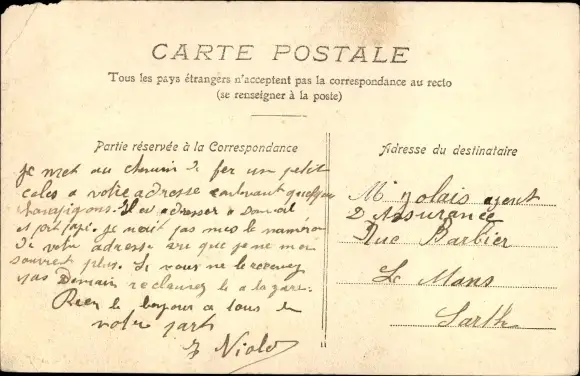 CARTE POSTALE
Tous les pays étrangers n'acceptent pas la correspondance au recto
(se renseigner à la poste)
Partie réservée à la Correspondance
Je met au chemin de fer un petit
coles a votre adresse contenant quelques
champignons. Il es adresser a Domicil
et port paye. Je n'ait pas mis le numéro
de votre adresse vu que je ne men
souvient plus. Si vous ne le recevez
pas Demain reclamez le a la gare.
Recev le bonjour a tous de
notre part
Niolo
Adresse du destinataire
Mr Jolais agent
D Assurance
Rue Barbier
Le Mans
Sarthe